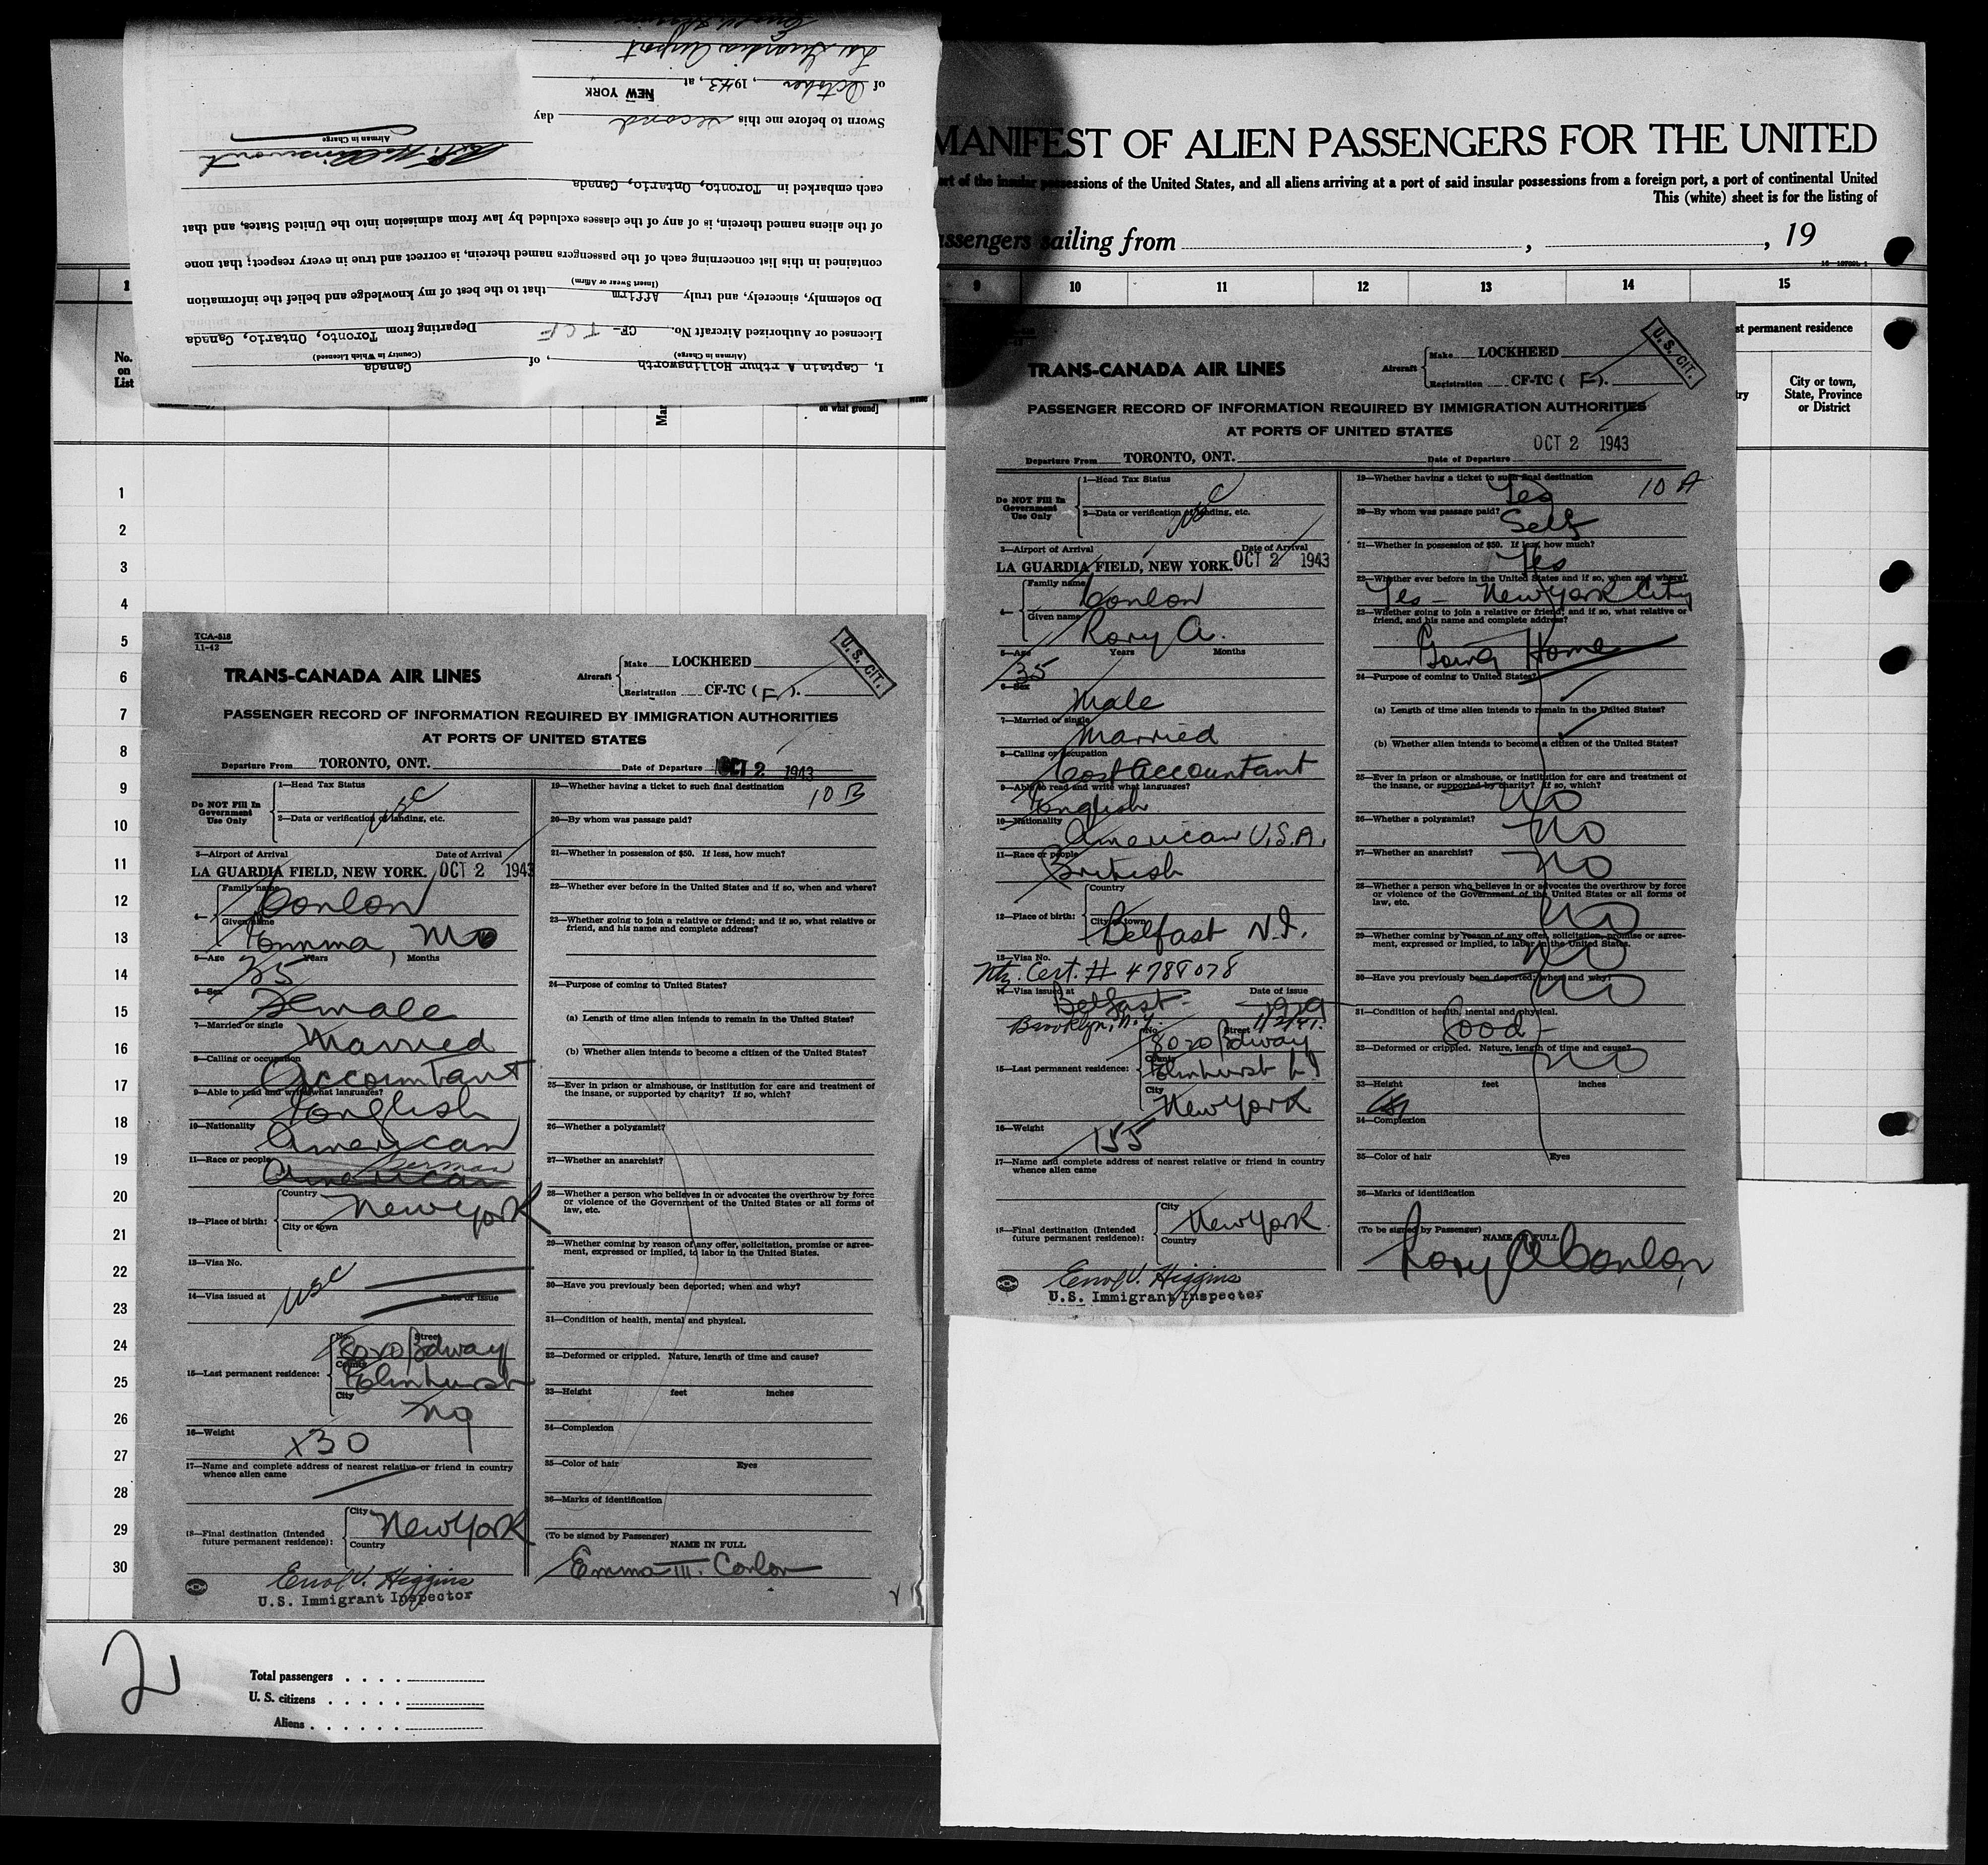 I, Captain A rthur Hollinsworth, of Canada
(Airman in Charge) (Country in Which Licensed)
Licensed or Authorized Aircraft No. CF- TCF Departing from Toronto, Ontario, Canada
Do solemnly, sincerely, and truly Affirm that to the best of my knowledge and belief the information
(Insert Swear or Affirm)
contained in this list concerning each of the passengers named therein, is correct and true in every respect; that none
of the aliens named therein, is of any of the classes excluded by law from admission into the United States, and that
each embarked in Toronto, Ontario, Canada
Airman in Charge
Sworn to before me this second day
of October, 1943, at NEW YORK
La Guardia Airport
MANIFEST OF ALIEN PASSENGERS FOR THE UNITED
ort of the insular possessions of the United States, and all aliens arriving at a port of said insular possessions from a foreign port, a port of continental United
This (white) sheet is for the listing of
assengers sailing from , , 19
1 9 10 11 12 13 14 15
No.
on
List
on what ground]
st permanent residence
City or town,
State, Province
or District
1
2
3
4
5
6
7
8
9
10
11
12
13
14
15
16
17
18
19
20
21
22
23
24
25
26
27
28
29
30
TCA-518
11-42
U. S. CIT.
TRANS-CANADA AIR LINES
Aircraft Make LOCKHEED
Registration CF-TC (F).
PASSENGER RECORD OF INFORMATION REQUIRED BY IMMIGRATION AUTHORITIES
AT PORTS OF UNITED STATES
Departure From TORONTO, ONT. Date of Departure OCT 2 1943
Do NOT Fill In
Government
Use Only
1—Head Tax Status
USC
2—Data or verification of landing, etc.
3—Airport of Arrival Date of Arrival
LA GUARDIA FIELD, NEW YORK. OCT 2 1943
4— Family name Conlon
Given name Emma, M
5—Age 35 Years Months
6—Sex Female
7—Married or single Married
8—Calling or occupation Accountant
9—Able to read and write what languages? English
10—Nationality American
11—Race or people American German
12—Place of birth: Country New York
City or town
13—Visa No.
USC
14—Visa issued at Date of issue
15—Last permanent residence: No. Street 8020 Bdway
County Elmhurst
City NY
16—Weight 130
17—Name and complete address of nearest relative or friend in country
whence alien came
18—Final destination (Intended
future permanent residence): City New York
Country
Errol V. Higgins
U.S. Immigrant Inspector
19—Whether having a ticket to such final destination
10 B
20—By whom was passage paid?
21—Whether in possession of $50. If less, how much?
22—Whether ever before in the United States and if so, when and where?
23—Whether going to join a relative or friend; and if so, what relative or
friend, and his name and complete address?
24—Purpose of coming to United States?
(a) Length of time alien intends to remain in the United States?
(b) Whether alien intends to become a citizen of the United States?
25—Ever in prison or almshouse, or institution for care and treatment of
the insane, or supported by charity? If so, which?
26—Whether a polygamist?
27—Whether an anarchist?
28—Whether a person who believes in or advocates the overthrow by force
or violence of the Government of the United States or all forms of
law, etc.
29—Whether coming by reason of any offer, solicitation, promise or agree-
ment, expressed or implied, to labor in the United States.
30—Have you previously been deported; when and why?
31—Condition of health, mental and physical.
32—Deformed or crippled. Nature, length of time and cause?
33—Height feet inches
34—Complexion
35—Color of hair Eyes
36—Marks of identification
(To be signed by Passenger)
NAME IN FULL
Emma M. Conlon
2
Total passengers
U. S. citizens
Aliens
U. S. CIT.
TRANS-CANADA AIR LINES
Aircraft Make LOCKHEED
Registration CF-TC (F).
PASSENGER RECORD OF INFORMATION REQUIRED BY IMMIGRATION AUTHORITIES
AT PORTS OF UNITED STATES
Departure From TORONTO, ONT. Date of Departure OCT 2 1943
Do NOT Fill In
Government
Use Only
1—Head Tax Status
USC
2—Data or verification of landing, etc.
3—Airport of Arrival Date of Arrival
LA GUARDIA FIELD, NEW YORK. OCT 2 1943
4— Family name Conlon
Given name Rory A.
5—Age 35 Years Months
6—Sex Male
7—Married or single Married
8—Calling or occupation Cost Accountant
9—Able to read and write what languages? English
10—Nationality American U.S.A.
11—Race or people British
12—Place of birth: Country
City or town Belfast N.I.
13—Visa No.
Ntz. Cert. # 4788078
14—Visa issued at Belfast Date of issue 1929
Brooklyn, N.Y.
15—Last permanent residence: No. Street 8020 Bdway
County Elmhurst L I
City New York
16—Weight 155
17—Name and complete address of nearest relative or friend in country
whence alien came
18—Final destination (Intended
future permanent residence): City New York
Country
Errol V. Higgins
U.S. Immigrant Inspector
19—Whether having a ticket to such final destination
Yes 10 A
20—By whom was passage paid?
Self
21—Whether in possession of $50. If less, how much?
Yes
22—Whether ever before in the United States and if so, when and where?
Yes - New York City
23—Whether going to join a relative or friend; and if so, what relative or
friend, and his name and complete address?
Going Home
24—Purpose of coming to United States?
(a) Length of time alien intends to remain in the United States?
(b) Whether alien intends to become a citizen of the United States?
25—Ever in prison or almshouse, or institution for care and treatment of
the insane, or supported by charity? If so, which?
No
26—Whether a polygamist? No
27—Whether an anarchist? No
28—Whether a person who believes in or advocates the overthrow by force
or violence of the Government of the United States or all forms of
law, etc. No
29—Whether coming by reason of any offer, solicitation, promise or agree-
ment, expressed or implied, to labor in the United States.
No
30—Have you previously been deported; when and why?
No
31—Condition of health, mental and physical.
Good
32—Deformed or crippled. Nature, length of time and cause?
No
33—Height feet inches
34—Complexion
35—Color of hair Eyes
36—Marks of identification
(To be signed by Passenger)
NAME IN FULL
Rory A Conlon